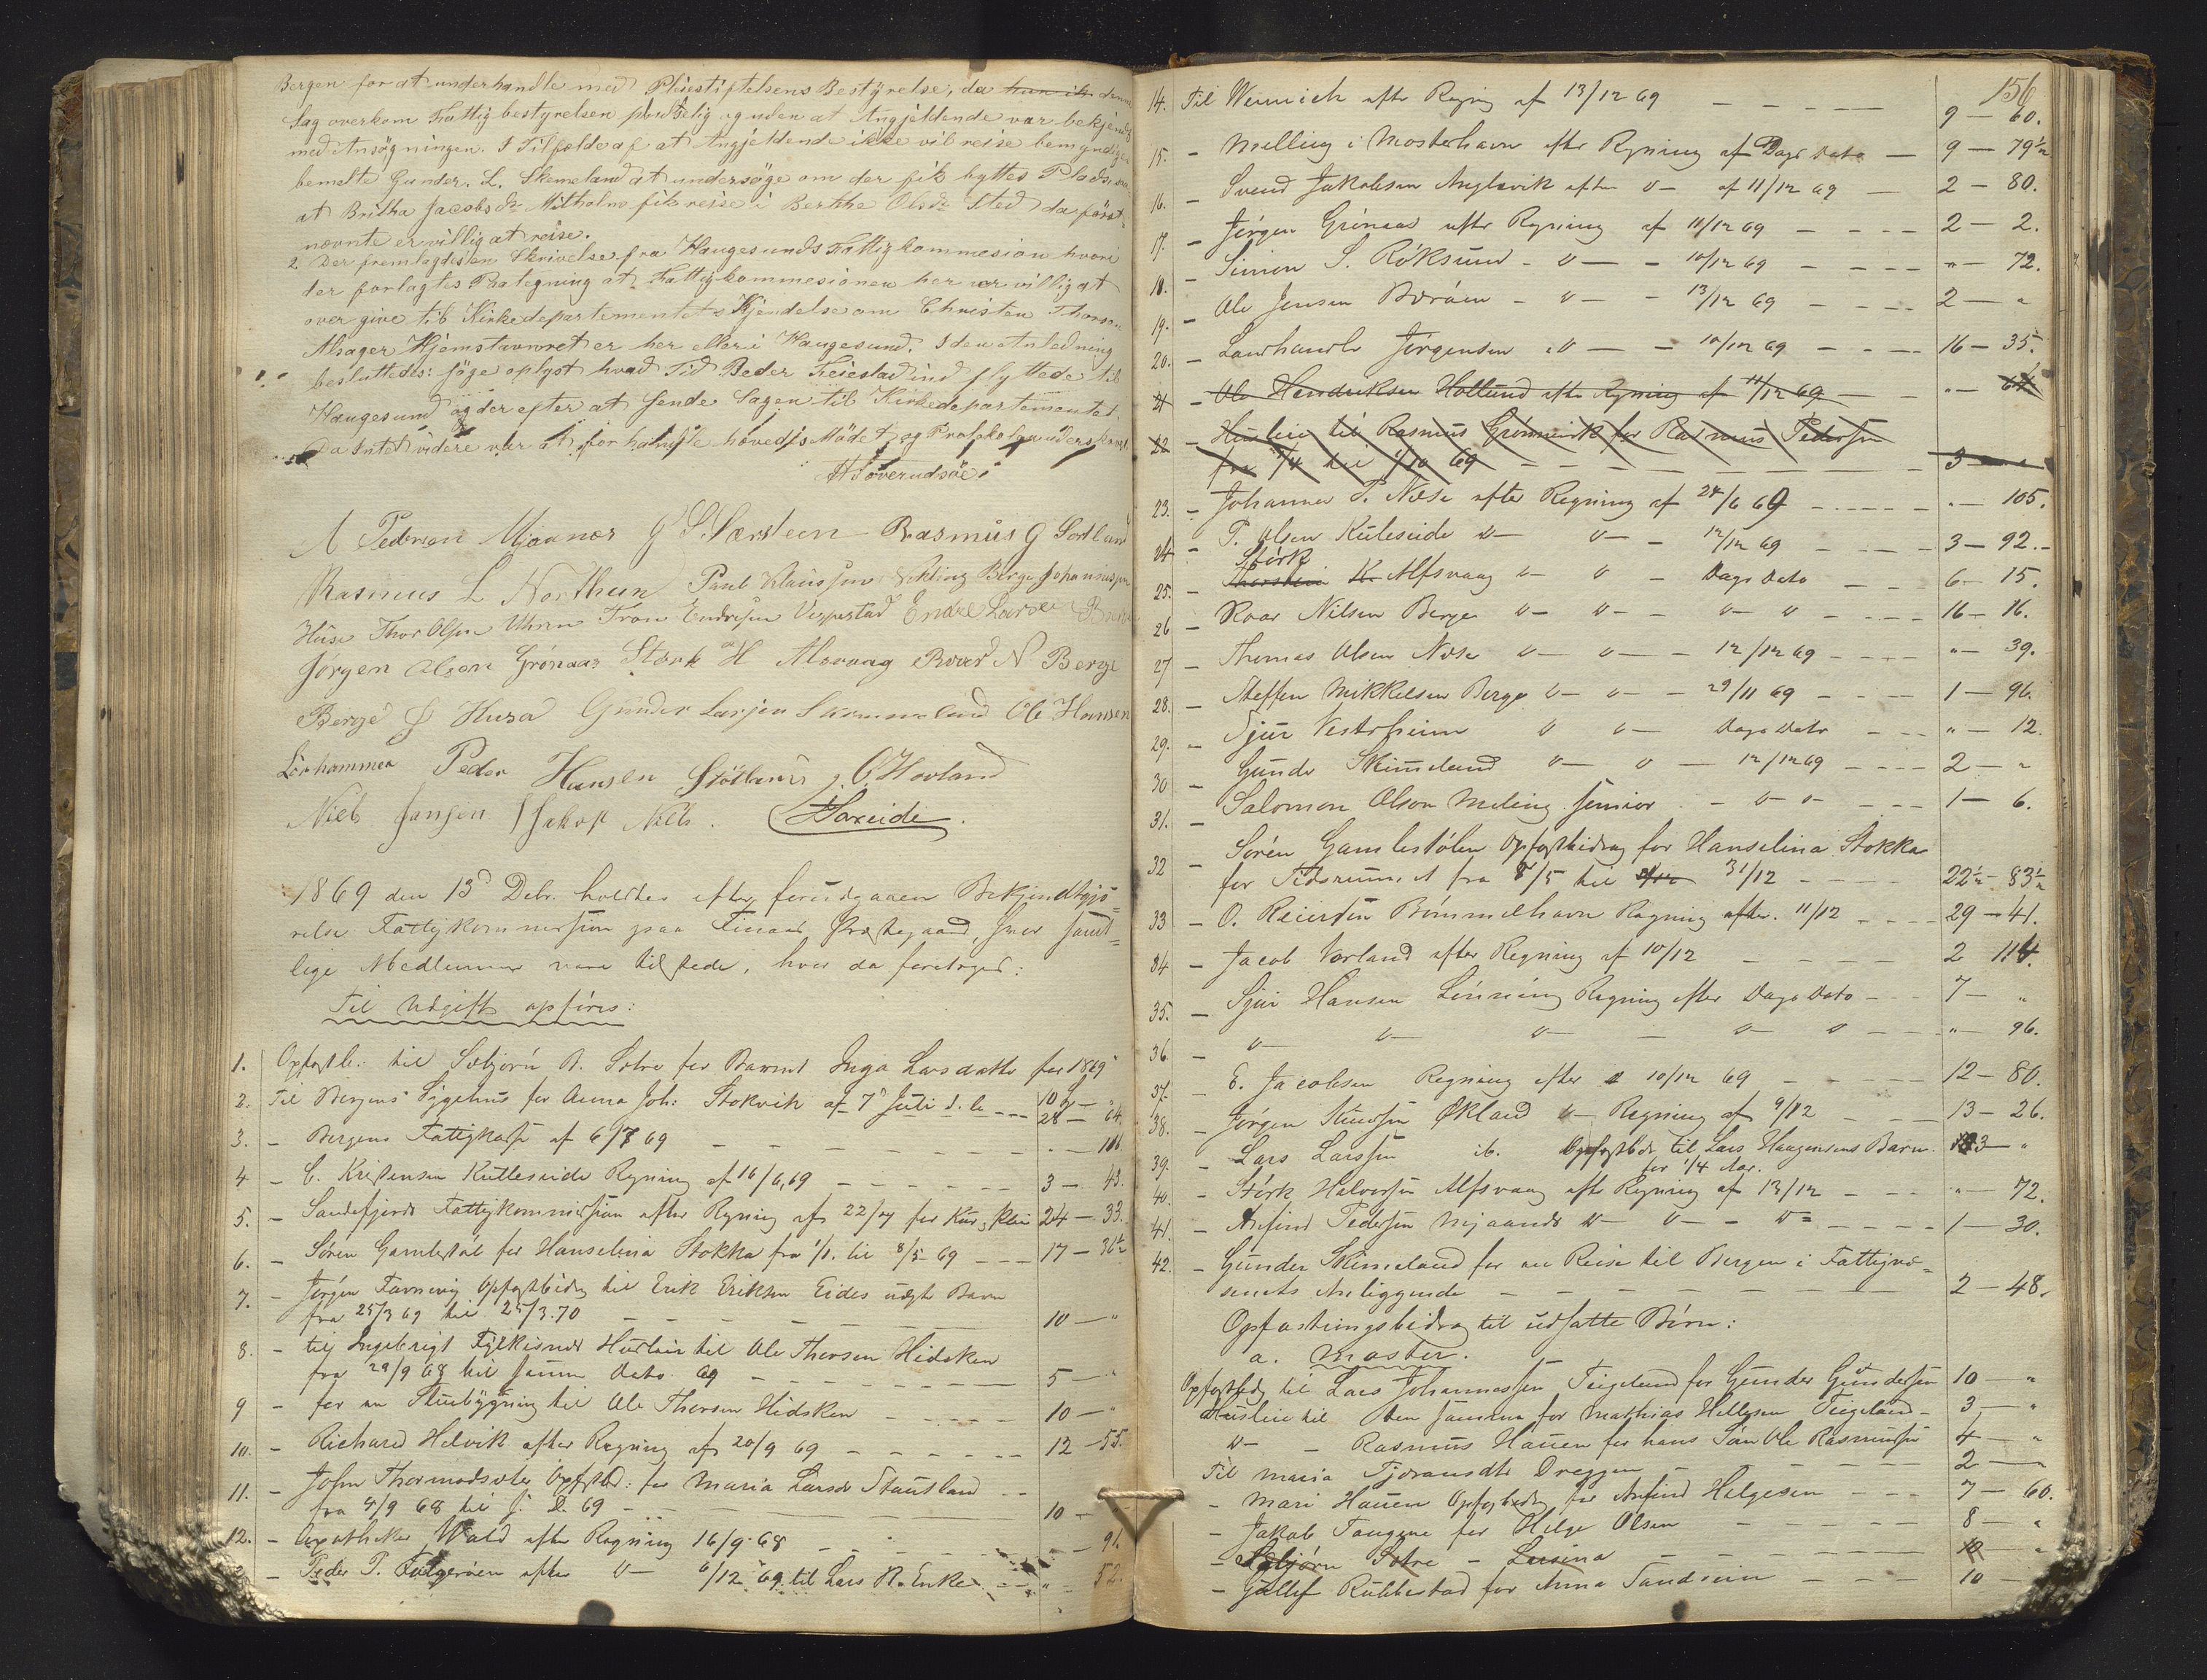 Bergen for at underhandle med Pleiestiftelsens Bestyrelse, da hun ik denne
Sag overkom Fattigbestyrelsen pludselig og uden at Angjeldende var bekjendt
med Ansøgningen. I Tilfælde af at Angjeldende ikke vil reise bemyndiges
bemelte Gunder L. Skemeland at undersøge om der fik byttes Plads,
at Britha Jacobsdr Mitholm fik reise i Berthe Olsdr Sted da først-
nævnte er villig at reise.
2 Der fremlagdes en Skrivelse fra Haugesunds Fattigkommesion hvori
der forlagtes Paategning at Fattigkommesionen her er villig at
over give til Kirkedepartementets Kjendelse om Christen Thorsen
Alsager Hjemstavnsret er her eller i Haugesund. I den Anledning
besluttedes: søge oplyst hvad Tid Peder Eeiestad ind flyttede til
Haugesund og der efter at sende Sagen til Kirkedepartementet.
Da Intet videre var at forhandle hævedes Mødet og Protokolen underskrevet
A Pedersen Mjaanes G S Særsteen Rasmus G Sortland
Rasmus L Northun Paul Klaussen Vikling Berge Johannessen
Huse Thor Olsen Uhren Tron Endresen Vespestad Endre Larsen
Jørgen Olsen Grønaas Størk H Alsvaag Roar N Berge
Berge J Husa Gunder Larsen Skemeland Ole Hansen
Lørhammer Peder Hansen Støtland J. O. Hovland
Niels Jansen Jakop Niels. Hareide.
1869 den 13d Debr. holdtes efter forudgaaen Bekjendtgjø-
relse Fattigkommission paa Finaas Præstegaard, hvor samt-
lige Medlemmer vare tilstede, hvor da foretoges:
Til Udgift opføres:
1. Opfostb: til Sæbjørn A. Sotre for Barnet Inga Larsdatter for 1869 10 -
2. Til Bergens Sygehus for Anna Joh: Stokvik af 7d Juli d. A. --- 28 - 64.
3. - Bergens Fattigkasse af 6/7 69 - - - 100.
4 - C. Kristensen Kulleseide Regning af 16/6,69 - - - 3 - 43.
5. - Sandefjords Fattigkommission efter Regning af 22/7 for Kur & Pleie 24 - 33.
6. - Søren Gamlestøl for Hanselina Stokka fra 1/1. til 8/5 69 --- 17 - 36½
7. - Jørgen Tavning Opfostbidrg til Erik Eriksen Eides uægte Barn
fra 25/3 69 til 25/3.70 - - - 10 - "
8. - til Ingebrigt Fylkesnes Husleie til Ole Thorsen Hidsken
fra 29/9 68 til samme Dato 69 - - - 5 - "
9 - for en Stuebygning til Ole Thorsen Hidsken - - - 10 - "
10. - Richard Helvik efter Regning af 20/9 69 - - - 12 - 55.
11. - John Thormodsæter Opfostbd: for Maria Larsdr Stautland - -
fra 4/9 68 til s. D. 69 - - - 10 -
12. - Apotheker Wald efter Regning 16/9 68 - - - 91.
- Peder P. Fulgerøen efter v- 6/12 69 til Lars R. Enke - - " - 52.
156
14. Til Weinwich efter Regning af 13/12 69 - - - 9 - 60.
15. - Melling i Mosterhavn efter Regning af Dags Dato - 9 - 79½
16. - Svend Jakobsen Anglevik efter v- af 11/12 69 - 2 - 80.
17. - Jørgen Grønaas efter Regning af 11/12 69 - - - 2 - 2.
18. - Simon S. Røksund - v- - 10/12 69 - - - " - 72.
19. - Ole Jensen Børøen - v- - 13/12 69 - - - 2 - "
20. - Landhandler Jørgensen v- - 10/12 69 - - - 16 - 35.
21 - Ole Hendriksen Hollund efter Regning af 11/12 69 - - " - 64
22 - Husleie til Rasmus Grønnevik for Rasmus Pedersen
fra 1/4 til 1/10 69 - - - 3 - "
23. - Johannes T. Næse efter Regning af 24/6 69 - - - " - 105.
24 - T. Olsen Kuleseide v- v- - 12/12 69 - - - 3 - 92.-
Størk
25. - Thorstein K. Alfsvaag v- v - Dags Dato - - 6 - 15.
26 - Roar Nilsen Berge v- v- - v- v - - - 16 - 16.
27 - Thomas Olsen Næse v- v- - 12/12 69 - - - " - 39.
28. - Steffen Mikkelsen Berge v- v- - 29/11 69 - - - 1 - 96.
29. - Sjur Vestrheim v v- Dags Dato - - - " - 12.
30 - Gunder Skimeland v- v - 12/12 69 - - - 2 - "
31. - Salomon Olson Meling senior - v- v- - - - 1 - 6.
32 - Søren Gamlestølen Opfostbidrag for Hanselina Stokka
for Tidsrummet fra 8/5 til 31/12 - - - 22½ - 83½
33 - O. Reiersen Bømmelhavn Regning efter 11/12 - - - 29 - 41.
34 - Jacob Vorland efter Regning af 10/12 - - - 2 114.
35. - Sjur Hansen Lønning Regning efter Dags Dato - - - 7 - "
36 - v- v- v- - v- v - - - " - 96.
37. - E. Jacobsen Regning efter 10/12 69 - - - 12 - 80.
38. - Jørgen Knudsen Økland v- Regning af 9/12 - - 13 - 26.
39. - Lars Larssen ib. Opfostbdr. til Lars Haagensens Barn. 3 - "
for 1/4 Aar.
40. - Størk Halvorsen Alfsvaag efter Regning af 13/12 - - - " - 72.
41. - Anfind Pedersen Mjaanes v- v- - v- - - - 1 - 30.
42. - Gunder Skimeland for en Reise til Bergen i Fattigvæ-
senets Anliggende - - - 2 - 48.
Opfostringsbidrag til udsatte Børn:
a. Moster.
Opfostbdg til Lars Johannessen Tiegland for Gunder Gundersen 10 - "
Husleie til den samme for Mathias Hellesen Tiegeland - 3 - "
v- - Rasmus Hauen for hans Søn Ole Rasmussen 4 - "
Til Maria Tjøransdtr Dreggen - - - 2 - "
- Mari Hauen Opfostbidrg for Anfind Helgesen - - - 7 - 60.
- Jakob Taugene for Helge Olsen - - - 8 - "
- Sæbjørn Sotre - Lusina - - - 10 - "
- Gullef Rubbestad for Anna Sandsein - - - 10 -